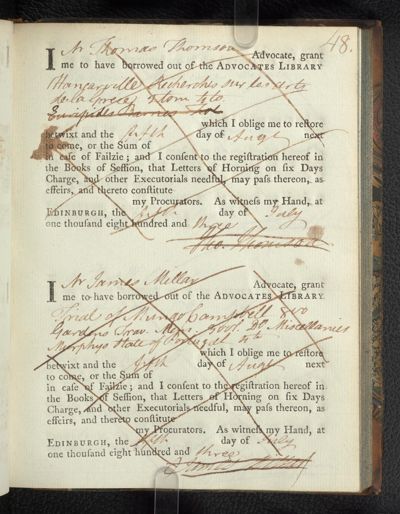 48.
I Mr Thomas Thomson Advocate, grant
me to have borrowed out of the ADVOCATES LIBRARY
Recherches sur les Arts
de la Grece, 2 tom 4to
Euripides Barnes
which I oblige me to reſtore
betwixt and the fifth day of Augt next
to come, or the Sum of
in caſe of Failzie; and I conſent to the regiſtration hereof in
the Books of Seſſion, that Letters of Horning on ſix Days
Charge, and other Executorials needful, may paſs thereon, as
effeirs, and thereto conſtitute
my Procurators. As witneſs my Hand, at
EDINBURGH, the fifth day of July
one thouſand eight hundred and three
Tho. Thomson
I Mr James Mellar Advocate, grant
me to have borrowed out of the ADVOCATES LIBRARY
Trial of Mungo Campbell 8vo
Gardens Trav. Mem. Do Miscellanies
Murphys State of Portugal 4to
which I oblige me to reſtore
betwixt and the fifth day of Augt next
to come, or the Sum of
in caſe of Failzie; and I conſent to the regiſtration hereof in
the Books of Seſſion, that Letters of Horning on ſix Days
Charge, and other Executorials needful, may paſs thereon, as
effeirs, and thereto conſtitute
my Procurators. As witneſs my Hand, at
EDINBURGH, the fifth day of July
one thouſand eight hundred and three